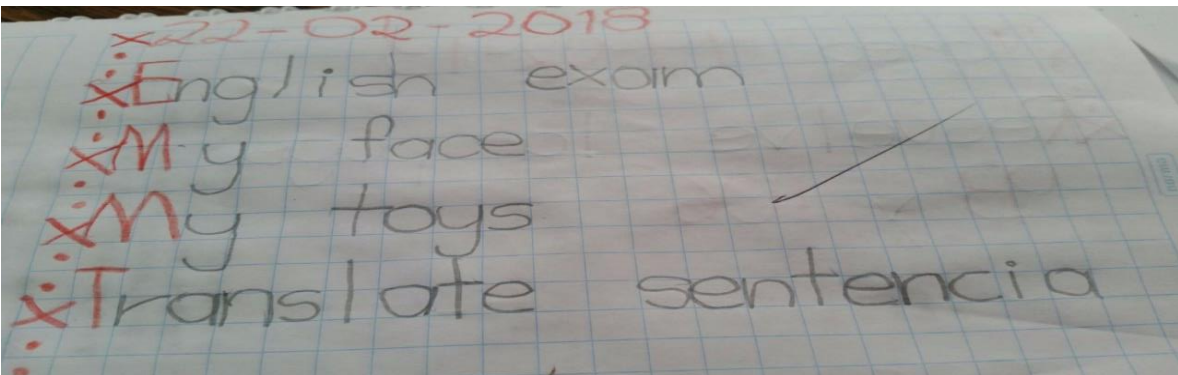 22-02-2018
English exam
My face
My toys
Translate sentencia